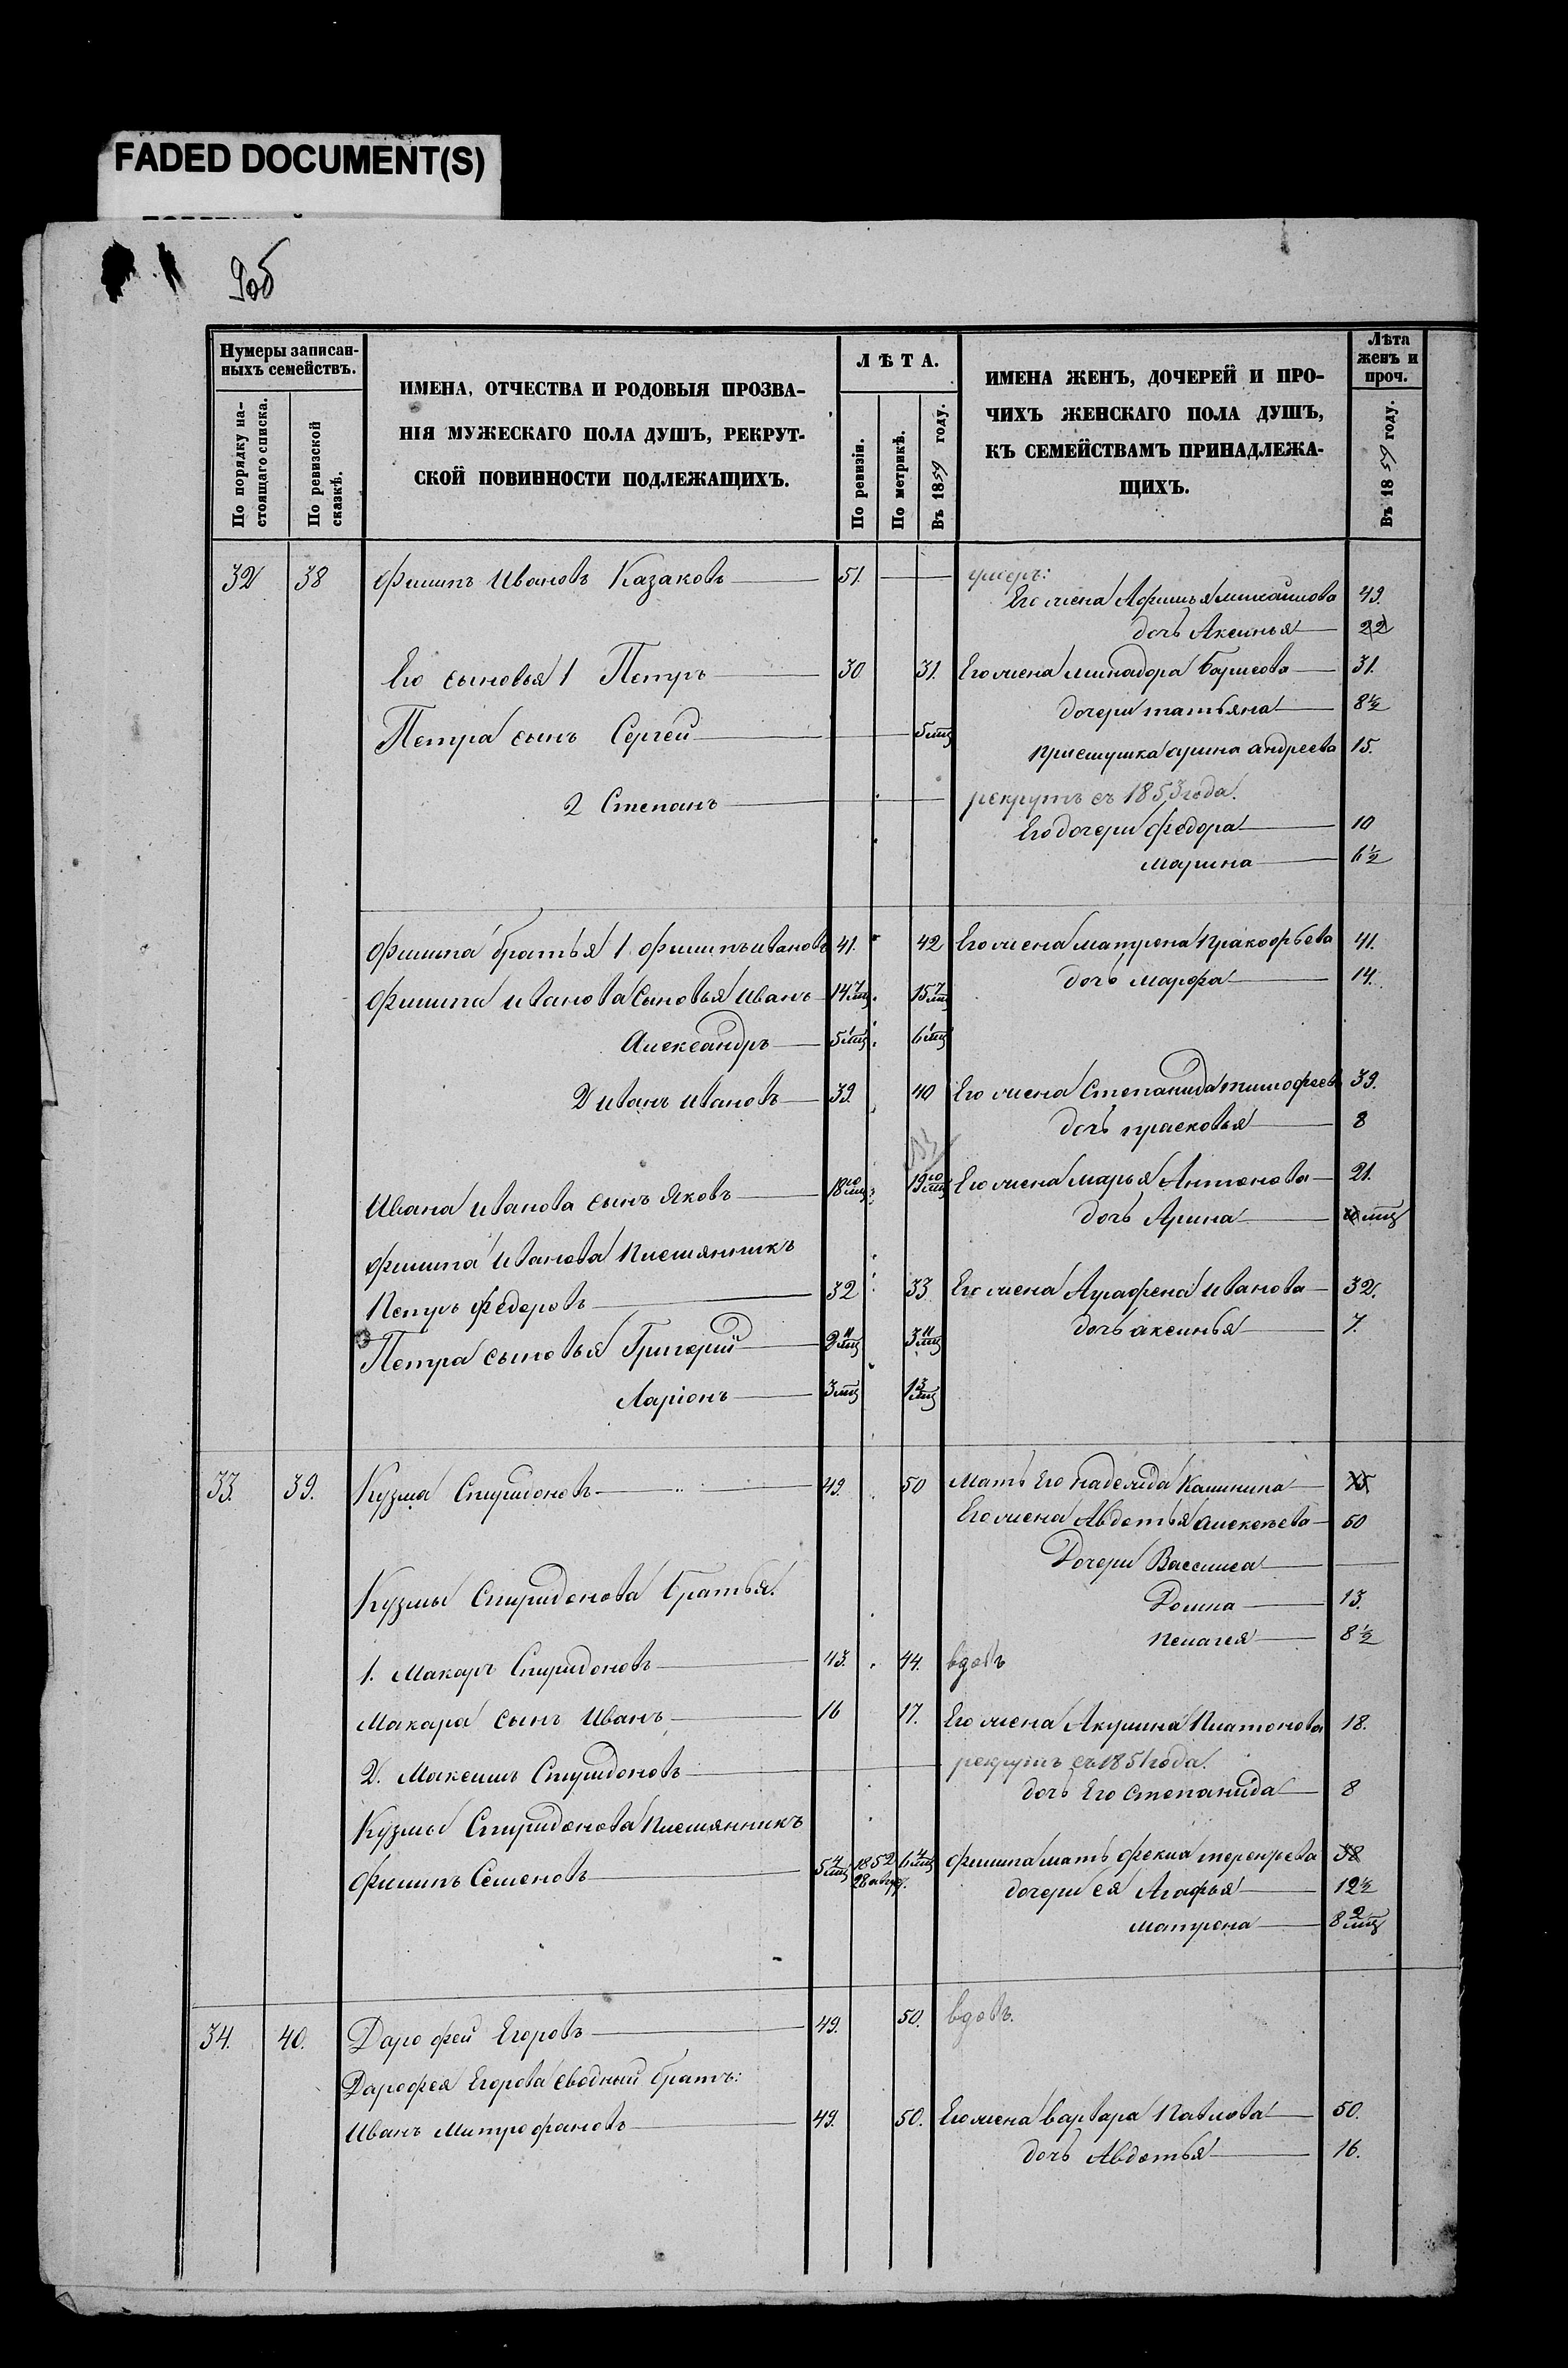 FADED DOCUMENT(S)
9об
Нумеры записан-
ныхъ семействъ.
По порядку на-
стоящаго списка.
По ревизской
сказкѣ.
ИМЕНА, ОТЧЕСТВА И РОДОВЫЯ ПРОЗВА-
НІЯ МУЖЕСКАГО ПОЛА ДУШЪ, РЕКРУТ-
СКОЙ ПОВИННОСТИ ПОДЛЕЖАЩИХЪ.
ЛѢТА.
По ревизіи.
По метрикѣ.
Въ 1859 году.
ИМЕНА ЖЕНЪ, ДОЧЕРЕЙ И ПРО-
ЧИХЪ ЖЕНСКАГО ПОЛА ДУШЪ,
КЪ СЕМЕЙСТВАМЪ ПРИНАДЛЕЖА-
ЩИХЪ.
Лѣта
женъ и
проч.
Въ 1859 году.
32 38 Филипъ Ивановъ Казаковъ 51. умеръ:
Его жена Афимья михайлова 49.
дочь Аксинья 22
Его сыновья 1 Петръ 30 31. Его жена минадора Борисова 31.
дочери татьяна 8½
Петра сынъ Сергей 5мц
приемушка арина андреева 15.
2 Степанъ рекрутъ съ 1853 года.
Его дочери федора 10
марина 6½
Филипа братья 1. филипъ ивановъ 41. 42 Его жена матрена Пракофьева 41.
дочь марфа 14.
Филипа иванова сыновья иванъ 14 7мц. 15 7мц
Александръ 5 1мц. 6 1мц
2 иванъ ивановъ 39. 40 Его жена Степанида тимофеева 39.
дочь прасковья 8
Ивана иванова сынъ яковъ 18 10мц. 19 10мц Его жена марья Антонова 21.
дочь Арина мц
филипа иванова племянникъ
Петръ федоровъ 32 33 Его жена Аграфена иванова 32.
дочь аксинья 7.
Петра сыновья Григорий 2 11мц 3 11мц
Ларіонъ 3мц 1 3мц
33. 39. Кузма Спиридоновъ 49. 50 Мать его надежида Калинина 75
Его жена Авдотья алексѣева 50
Дочери Василиса
Кузмы Спиридонова братья.
Домна 13.
пелагея 8½
1. Макаръ Спиридоновъ 43. 44. вдовъ
Макара сынъ иванъ 16 17. Его жена Акулина Платонова 18.
2. Максимъ Спиридоновъ рекрутъ съ 1851 года.
дочь Его степанида 8
Кузмы Спиридонова племянникъ
филипъ Семеновъ 5 4мц 1852 28 авгу. 6 4мц филипа мать фекла терентьева 38
дочери ея Агафья 12½
матрена 8 2мц
34. 40. Дарофей Егоровъ 49. 50. вдовъ.
Дарофея Егорова сводный братъ:
иванъ Митрофановъ 49. 50. Его жена варвара Павлова 50.
дочь Авдотья 16.